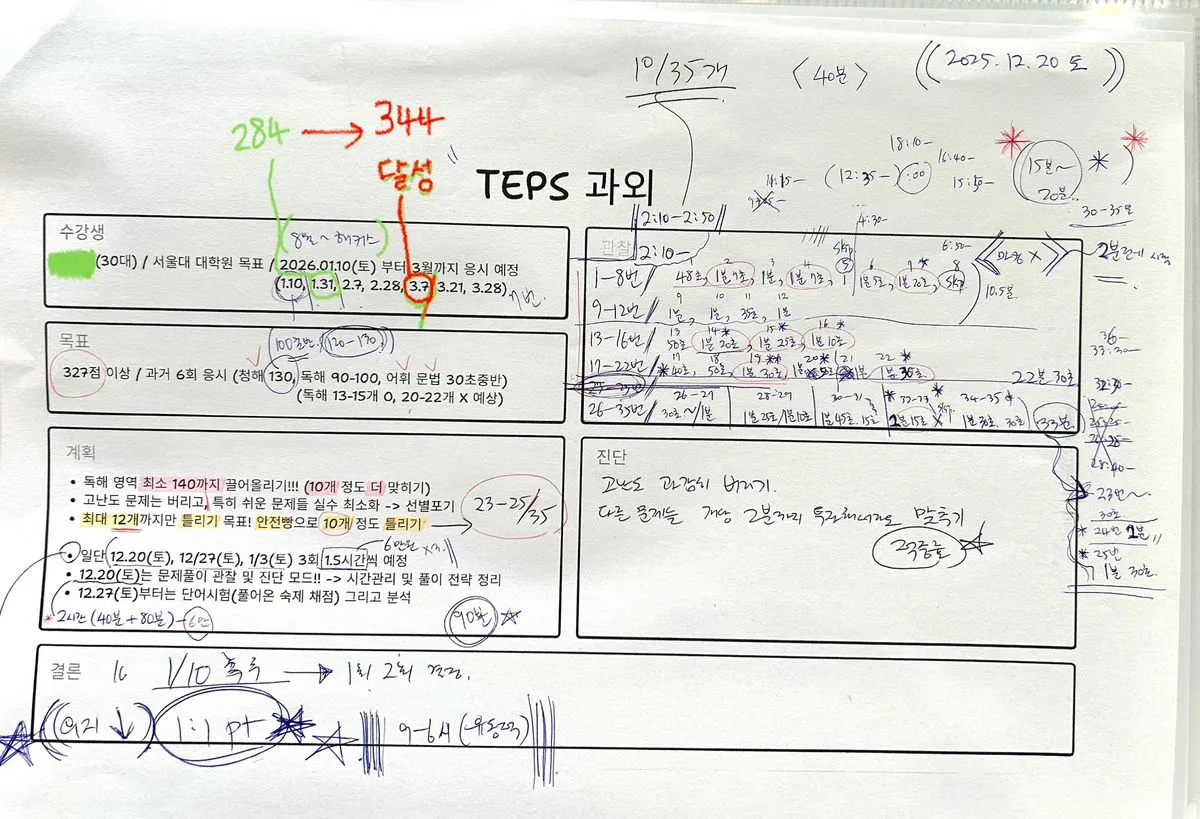 10/35개 〈40분〉 ((2025.12.20 토))
284 → 344
달성
TEPS 과외
18:10-
16:40-
(12:35-) :00
15:10-
15분~
20분
30-35번
수강생
(8월~해커스)
(30대) / 서울대 대학원 목표 / 2026.01.10(토) 부터 3월까지 응시 예정
(1.10, 1.31, 2.7, 2.28, 3.7, 3.21, 3.28) 7번
목표
100초반 (120-130)
327점 이상 / 과거 6회 응시 (청해 130, 독해 90-100, 어휘 문법 30초중반)
(독해 13-15개 O, 20-22개 X 예상)
계획
• 독해 영역 최소 140까지 끌어올리기!!! (10개 정도 더 맞히기)
• 고난도 문제는 버리고, 특히 쉬운 문제들 실수 최소화 -> 선별포기
• 최대 12개까지만 틀리기 목표! 안전빵으로 10개 정도 틀리기
23-25/35
6만원
• 일단 12.20(토), 12/27(토), 1/3(토) 3회 1.5시간씩 예정
• 12.20(토)는 문제풀이 관찰 및 진단 모드!! -> 시간관리 및 풀이 전략 정리
• 12.27(토)부터는 단어시험(풀어온 숙제 채점) 그리고 분석
*2시간 (40분+80분) - 6만
90분
관찰
2:10-2:50
4:30-
2:10-
6:50-
마킹 X
2분전에 시작
1-8번 / 48초, 1분 7초, 1분, 1분 7초, 1분 5초, 1분 20초, skip
10.5분
9-12번 / 1분, 1분, 35초, 1분
13-16번 / 50초 1분 20초, 1분 25초, 1분 10초
17-22번 / 40초, 50초, 1분 30초 1분 30초
22분 30초
26-35번 / 26-27 28-29 30-31 32-33 34-35
30초~/1분 1분25초/1분10초 1분45초. 15초 2분15초 1분 30초. 30초 33분.
33:30-
32:30-
28:40-
23번~
30초
* 24번 2분
* 25번
1분 30초.
진단
고난도 과감히 버리기.
다른 문제들 개당 2분까지 투자해서라도 맞추기
적중률
결론 1/10 혹은 → 1회 2회 결정.
((어휘 ↓)) 1:1 pt 9-6시 (유동적)